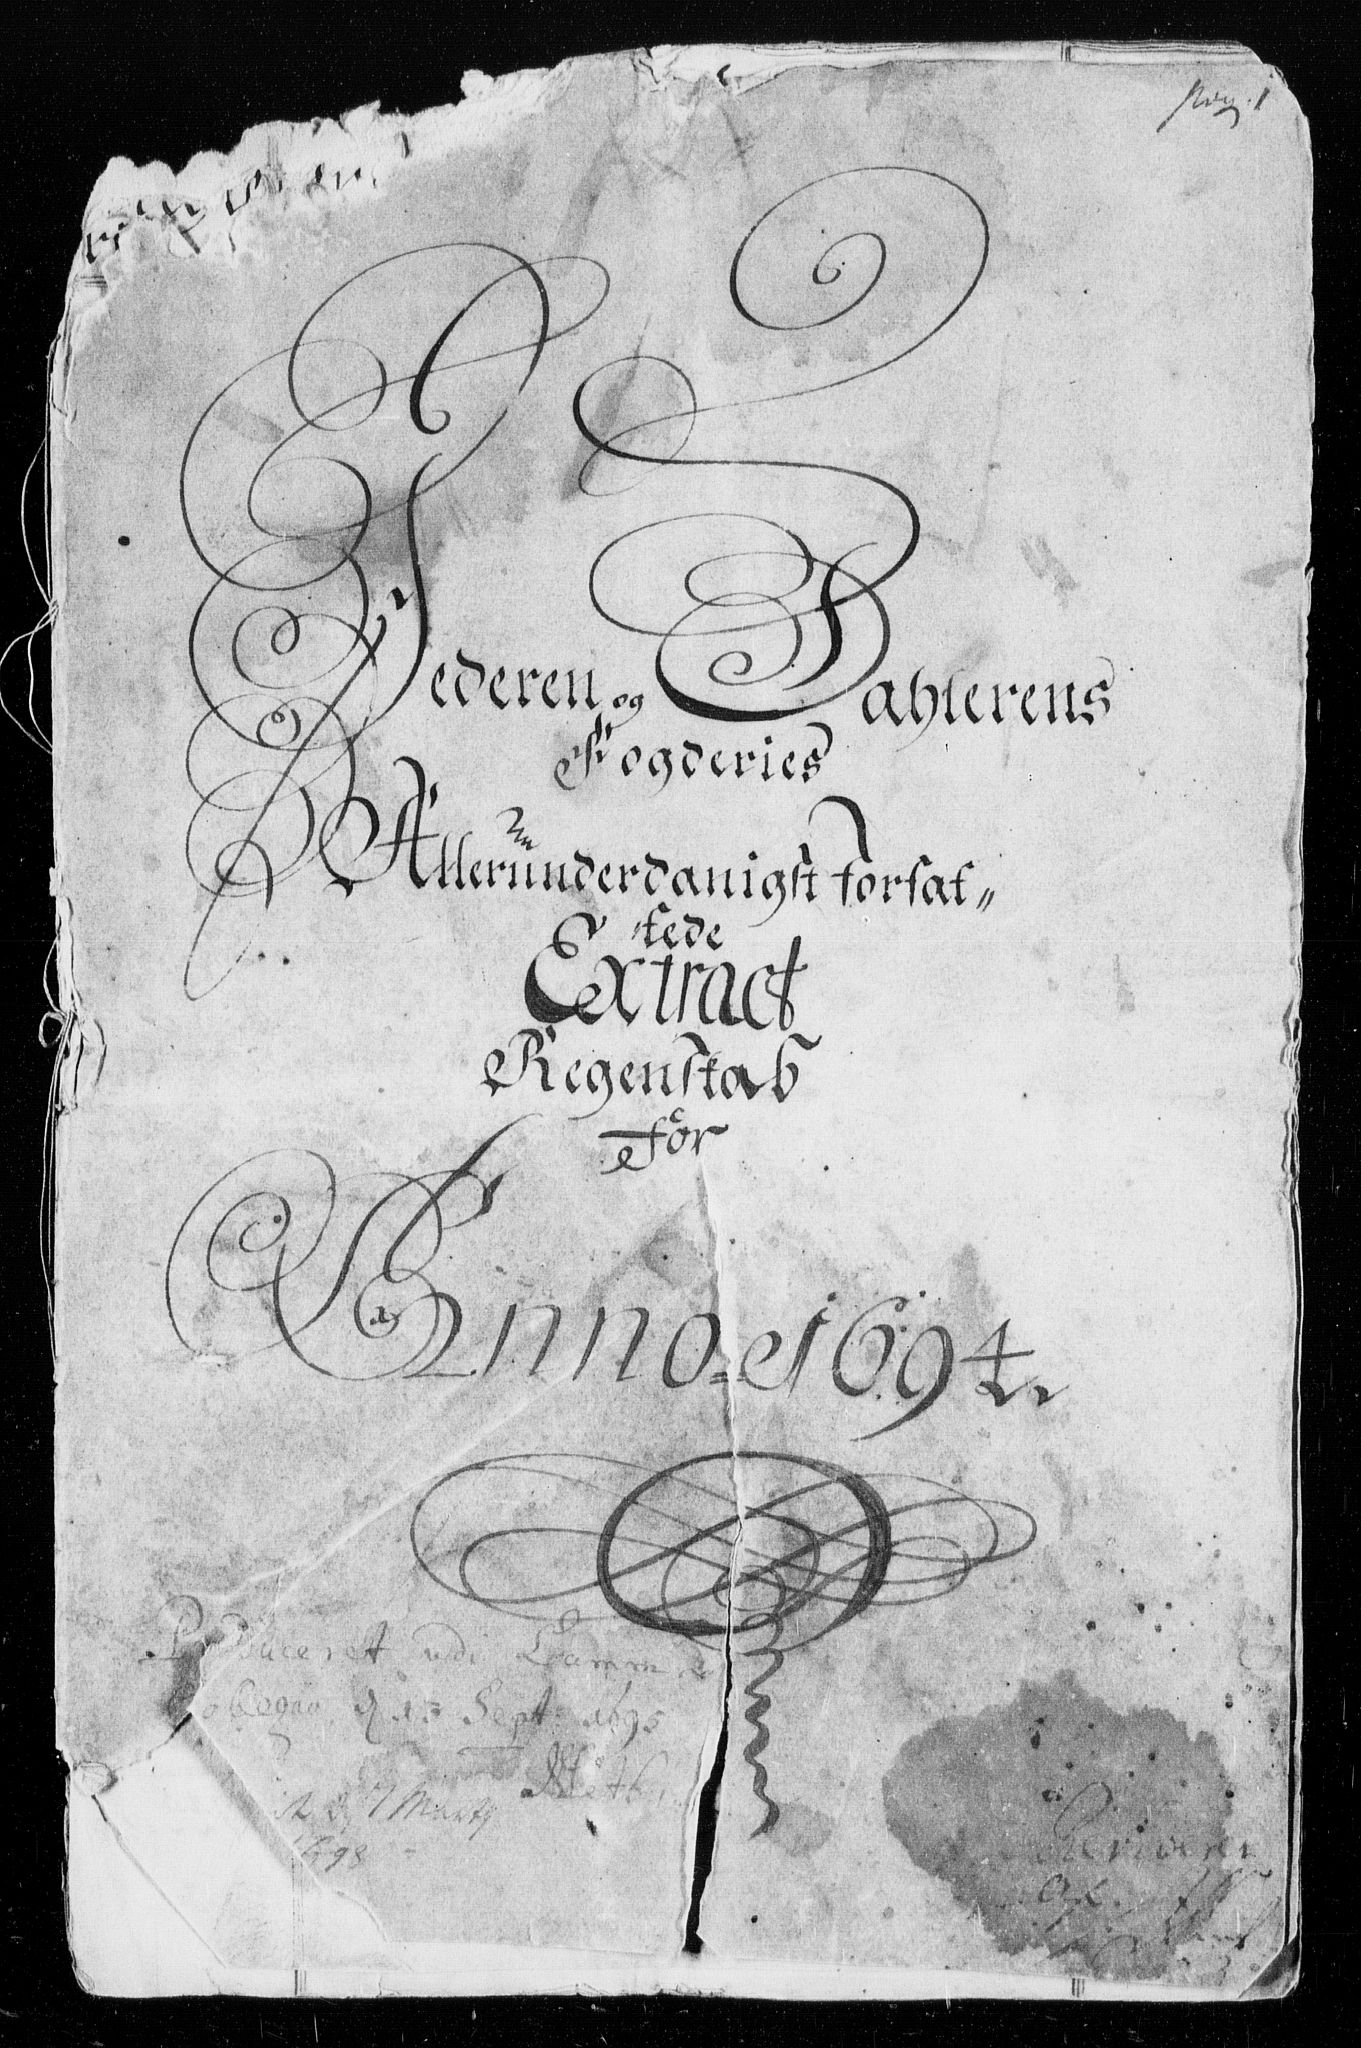 Jederen og Dahlerens
Fogderies
Allerunderdanigst forfat„
tede
Extract
Regenskab
för
Anno 1694.
Produceret udi Cammer
Collegio, d 13 Sept: 1695
Marty
1698